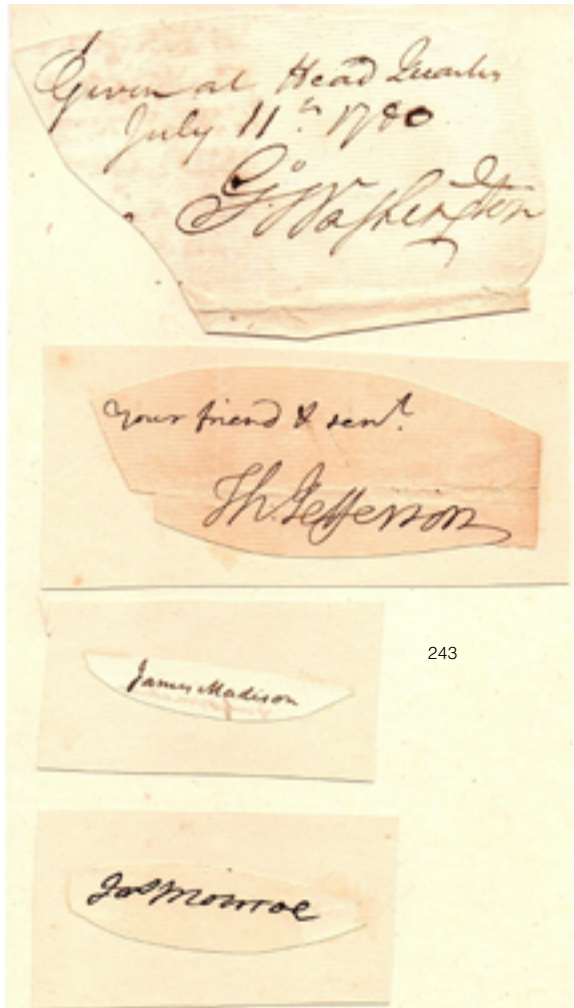 Given at Head Quarters
July 11th 1780
Go. Washington
your friend & servt.
Th. Jefferson
James Madison
243
Jas Monroe